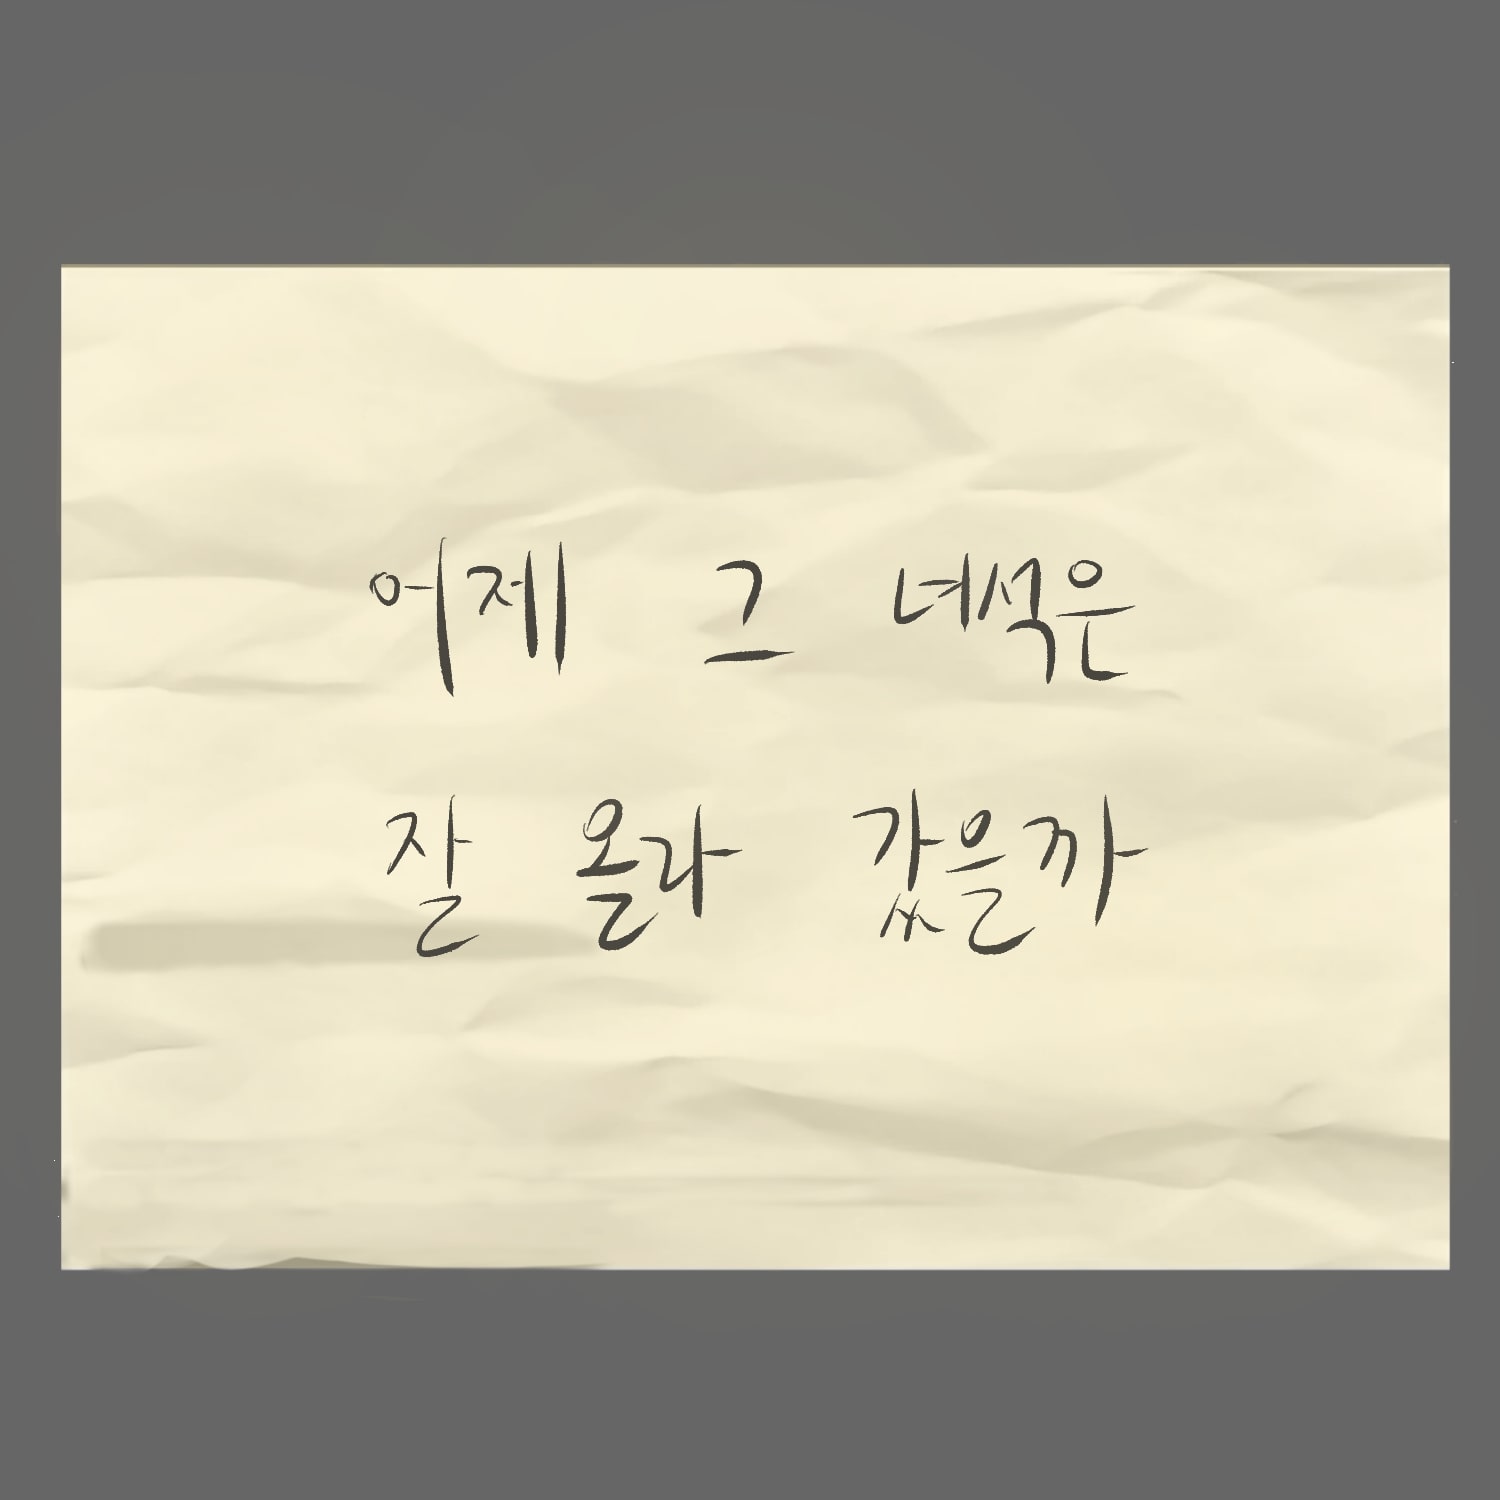 어제 그 녀석은
잘 올라 갔을까